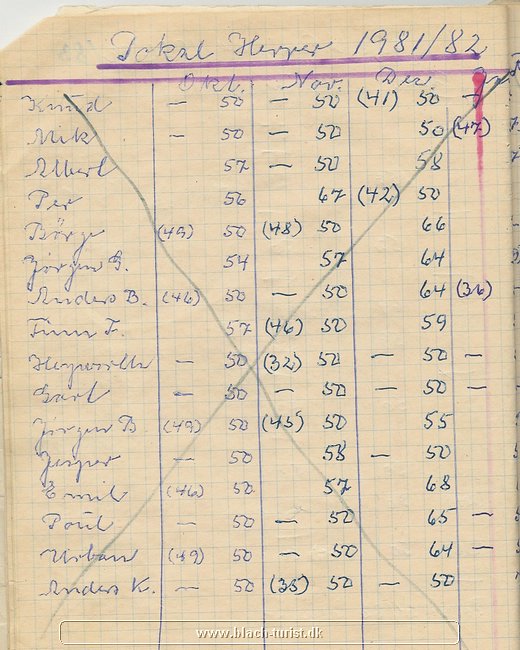 Pokal Herrer 1981/82
Okt. Nov. Dec.
Knud — 50 — 50 (41) 50 —
Mik — 50 — 50 50 (47)
Albert 57 — 50 58
Per 56 67 (42) 50
Börge (49) 50 (48) 50 66
Jörgen G. 54 57 64
Anders B. (46) 50 — 50 64 (36)
Finn F. 57 (46) 50 59
— 50 (32) 50 — 50 —
— 50 — 50 — 50 —
Jörgen B (49) 50 (45) 50 55
Jesper — 50 58 — 50
Emil (46) 50 57 68
Poul — 50 — 50 65 —
Urban (49) 50 — 50 64 —
Anders K. — 50 (35) 50 — 50
www.blach-turist.dk